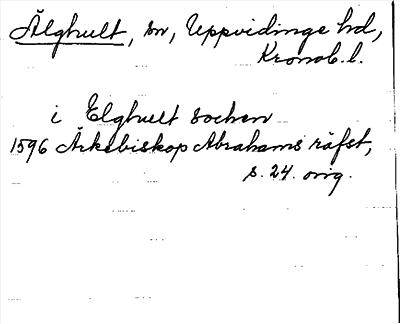 Älghult, sn, Uppvidinge hd,
Kronob. l.
i Elghult sochen
1596 Ärkebiskop Abrahams räfst,
s. 24. orig.